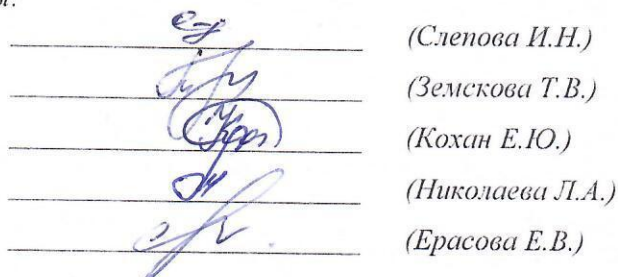 (Слепова И.Н.)
(Земскова Т.В.)
(Кохан Е.Ю.)
(Николаева Л.А.)
(Ерасова Е.В.)